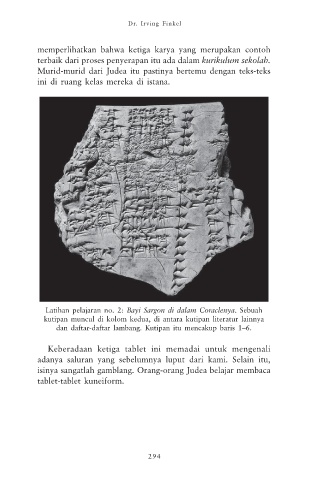 Dr. Irving Finkel
memperlihatkan bahwa ketiga karya yang merupakan contoh
terbaik dari proses penyerapan itu ada dalam kurikulum sekolah.
Murid-murid dari Judea itu pastinya bertemu dengan teks-teks
ini di ruang kelas mereka di istana.
Latihan pelajaran no. 2: Bayi Sargon di dalam Coraclenya. Sebuah
kutipan muncul di kolom kedua, di antara kutipan literatur lainnya
dan daftar-daftar lambang. Kutipan itu mencakup baris 1–6.
Keberadaan ketiga tablet ini memadai untuk mengenali
adanya saluran yang sebelumnya luput dari kami. Selain itu,
isinya sangatlah gamblang. Orang-orang Judea belajar membaca
tablet-tablet kuneiform.
294